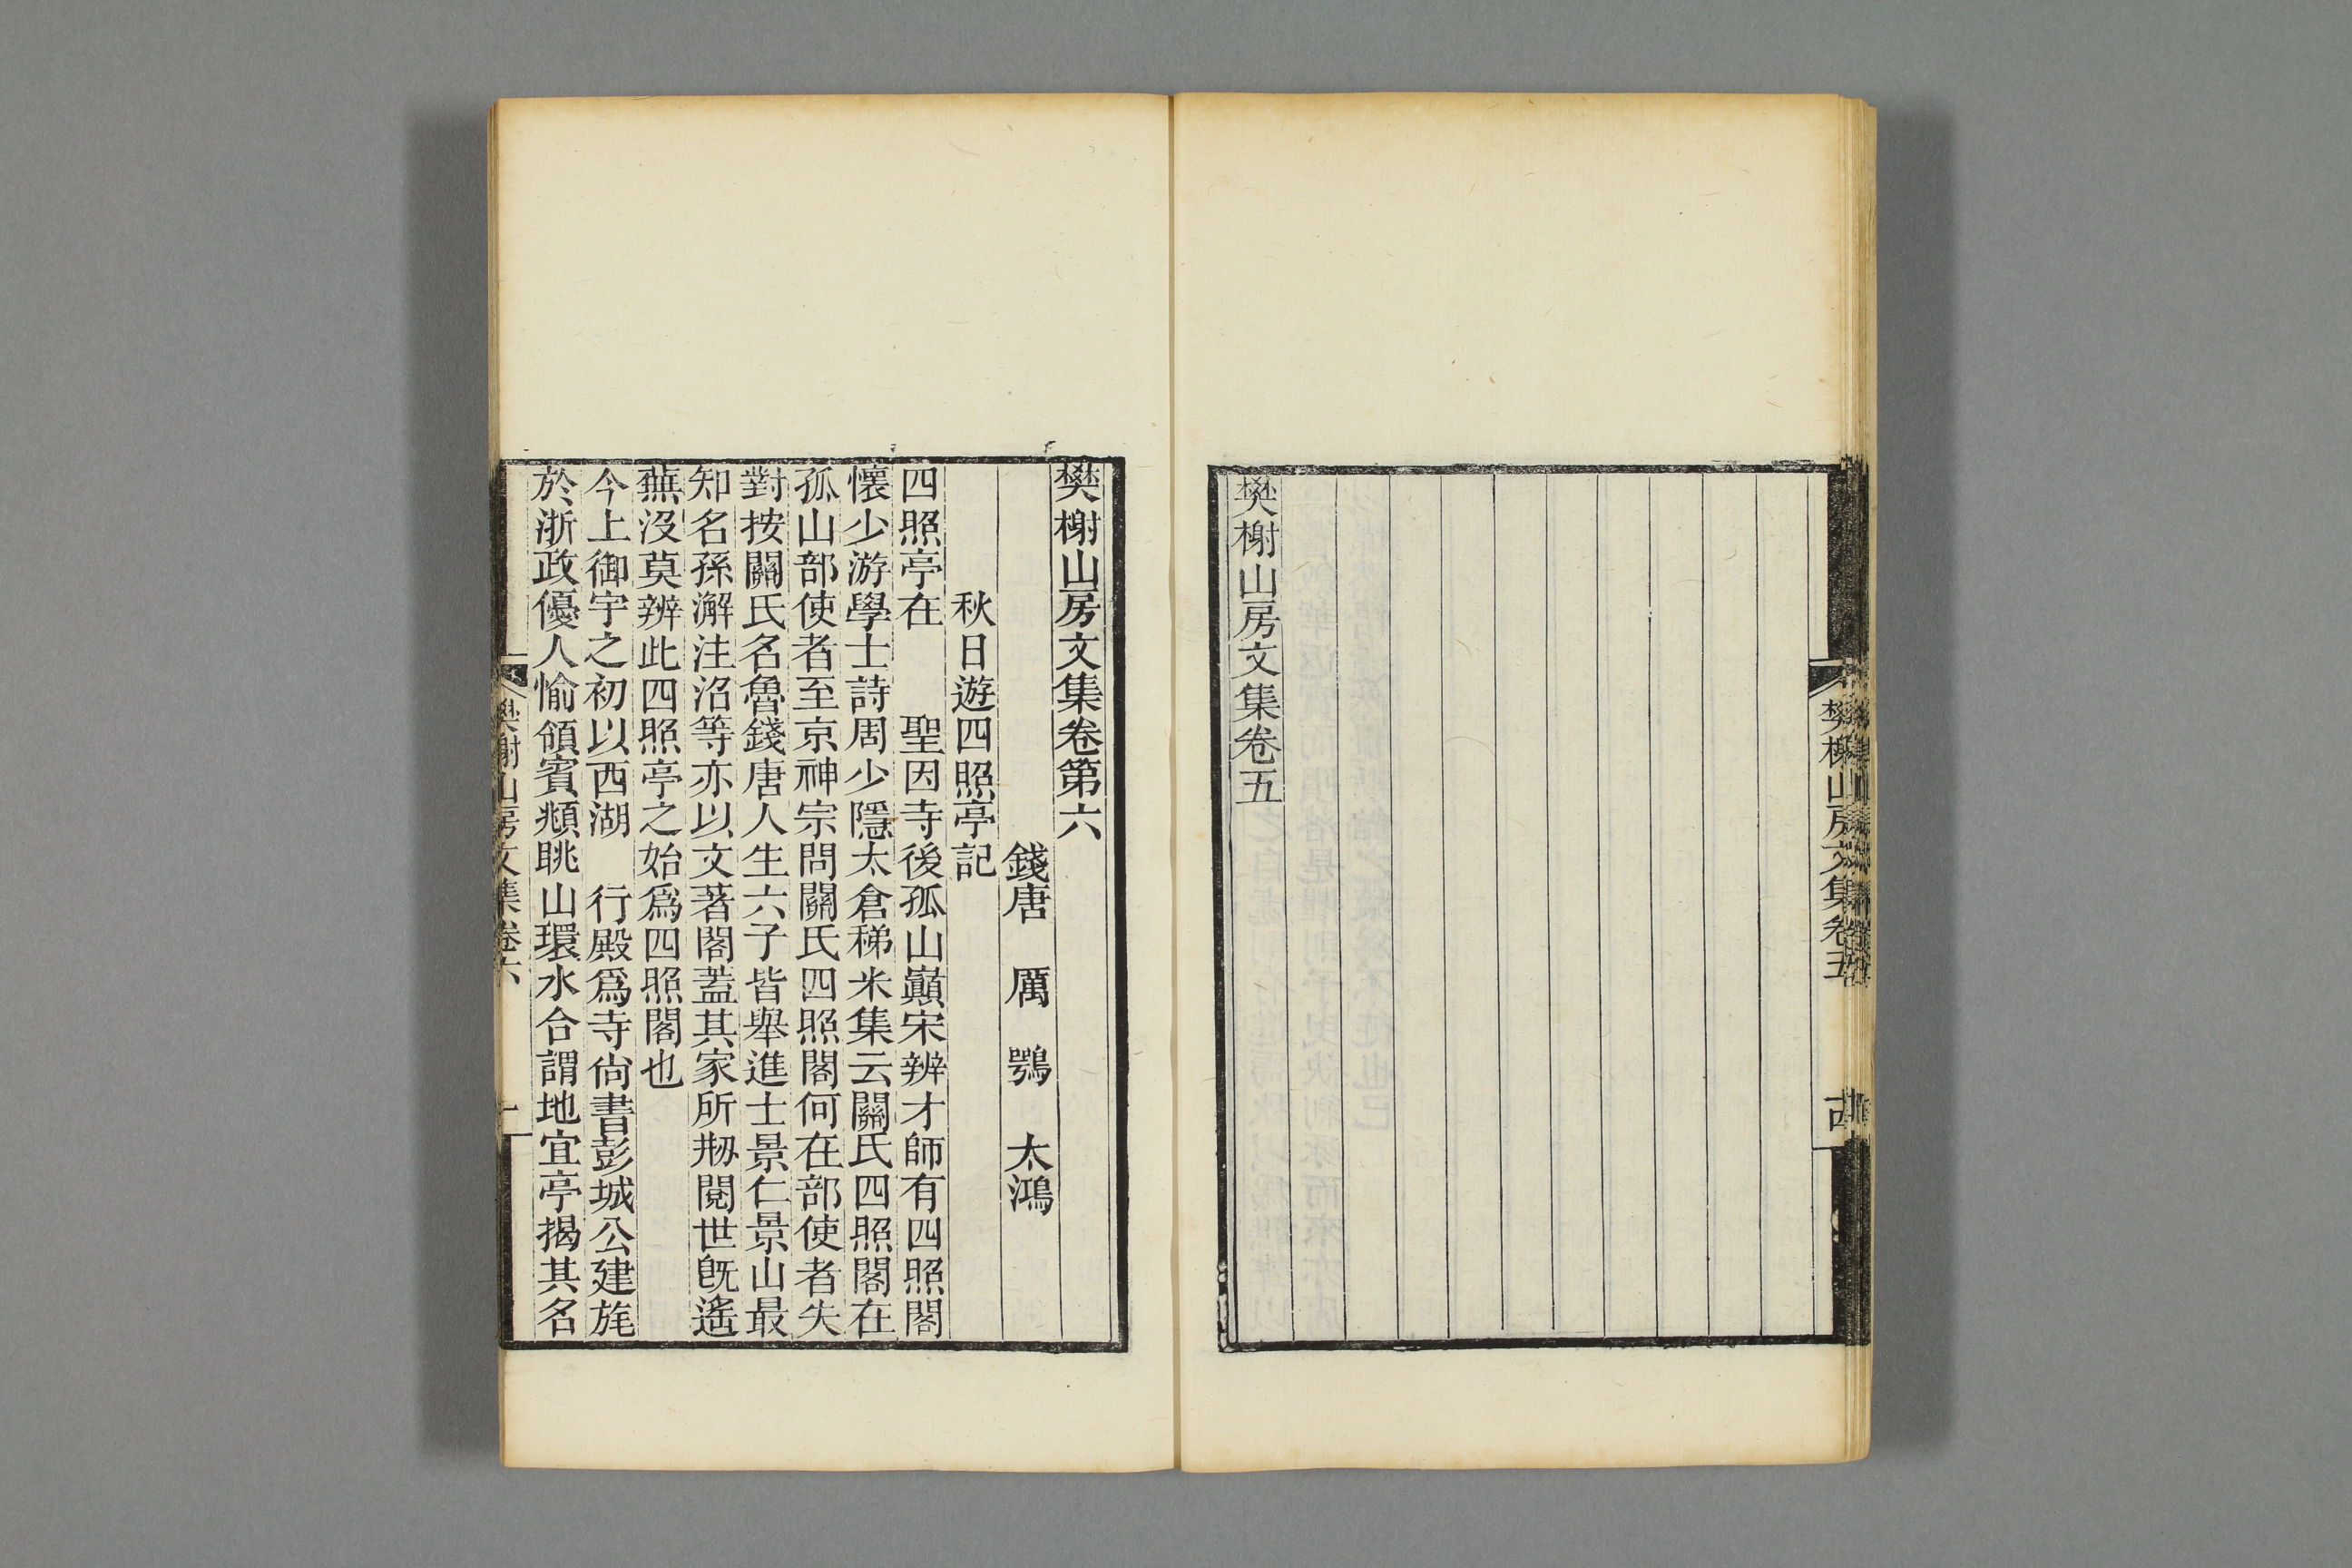 樊榭山房文集卷五
樊榭山房文集卷五
樊榭山房文集卷第六
錢唐　厲　鶚　太鴻
秋日遊四照亭記
四照亭在　聖因寺後孤山巔宋辨才師有四照閣
懷少游學士詩周少隱太倉稊米集云關氏四照閣在
孤山部使者至京神宗問關氏四照閣何在部使者失
對按關氏名魯錢唐人生六子皆舉進士景仁景山最
知名孫澥注沼等亦以文著閣蓋其家所刱閱世旣遙
蕪沒莫辨此四照亭之始爲四照閣也
今上御宇之初以西湖　行殿爲寺尙書彭城公建旄
於浙政優人愉領賓頫眺山環水合謂地宜亭揭其名
樊榭山房文集卷六